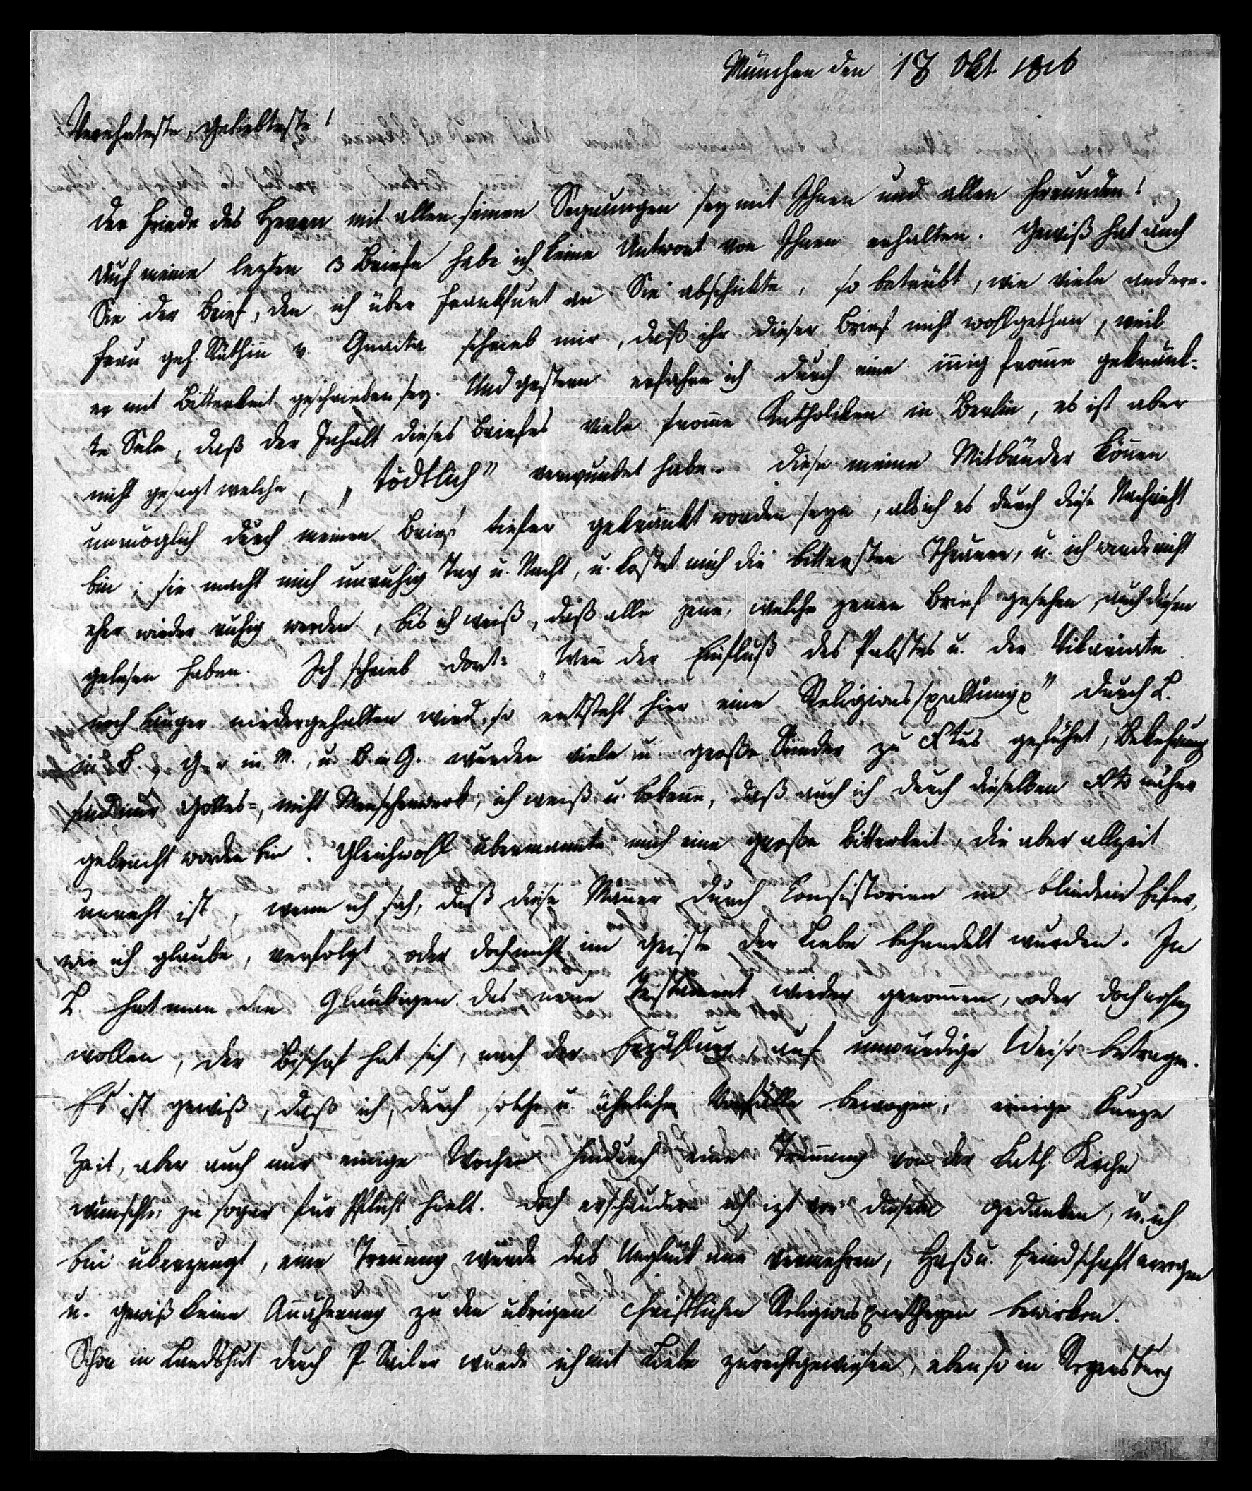 München den 18 Okt 1816
Verehrteste, Geliebteste!
Der Friede des Herrn mit allen seinen Segnungen sey mit Ihnen und allen Freunden!
Auf meine lezten 3 Briefe habe ich keine Antwort von Ihnen erhalten. Gewiß hat auch
Sie der Brief, den ich über Frankfurt an Sie abschikte, so betrübt, wie viele andere.
Frau geh. Räthin v. Guaita schrieb mir, daß ihr dieser Brief nicht wohlgethan, weil
er mit Bitterkeit geschrieben sey. Und gestern erfahre ich durch eine innig fromme gekränk-
te Sele, daß der Inhalt dieses Briefes viele fromme Katholiken in Berlin, es ist aber
nicht gesagt welche, „tödtlich" verwundet habe. Diese meine Mitbrüder können
unmöglich durch meinen Brief tiefer gekränkt worden seyn, als ich es durch diese Nachricht
bin; sie macht mich unruhig Tag u. Nacht, u. kostet mich die bittersten Thränen, u. ich werde nicht
eher wieder ruhig werden, bis ich weiß, daß alle jene, welche jenen Brief gesehen, auch diesen
gelesen haben. Ich schrieb dort: „Wenn der Einfluß des Pabstes u. der Vikariate
noch länger niedergehalten wird, so entsteht hier eine Religionsspaltung" Durch L.
in B., G. in M., u. B. in G. wurden viele u. große Sünder zu Xtus geführt, Bekehrung
sind nur Gottes-, nicht Menschenwerk, ich weiß u. bekenne, daß auch ich durch dieselben Xto näher
gebracht worden bin. Gleichwohl übermannte mich eine große Bitterkeit, die aber allzeit
unrecht ist, wenn ich sah, daß diese Männer durch Consistorien in blindem Eifer,
wie ich glaube, verfolgt oder doch nicht im Geiste der Liebe behandelt wurden. In
L. hat man den Gläubigen das neue Testament wieder genommen, oder doch
wollen, der Bischof hat sich, nach der Erzählung, auf unwürdige Weise betragen.
Es ist gewiß, daß ich, durch solche u. ähnliche Vorfälle bewogen, einige kurze
Zeit, aber auch nur einige Wochen hindurch eine Trennung von der kath. Kirche
wünschte, ja sogar für Pflicht hielt. Doch erschaudere ich izt vor diesem Gedanken, u. ich
bin überzeugt, eine Trennung würde das Unglück nur vermehren, Haß u. Feindschaft erregen
u. gewiß keine Annäherung zu den übrigen christlichen Religionspartheyen bewirken.
Schon in Landshut durch P Sailer wurde ich mit Liebe zurechtgewiesen, ebenso in Regensburg